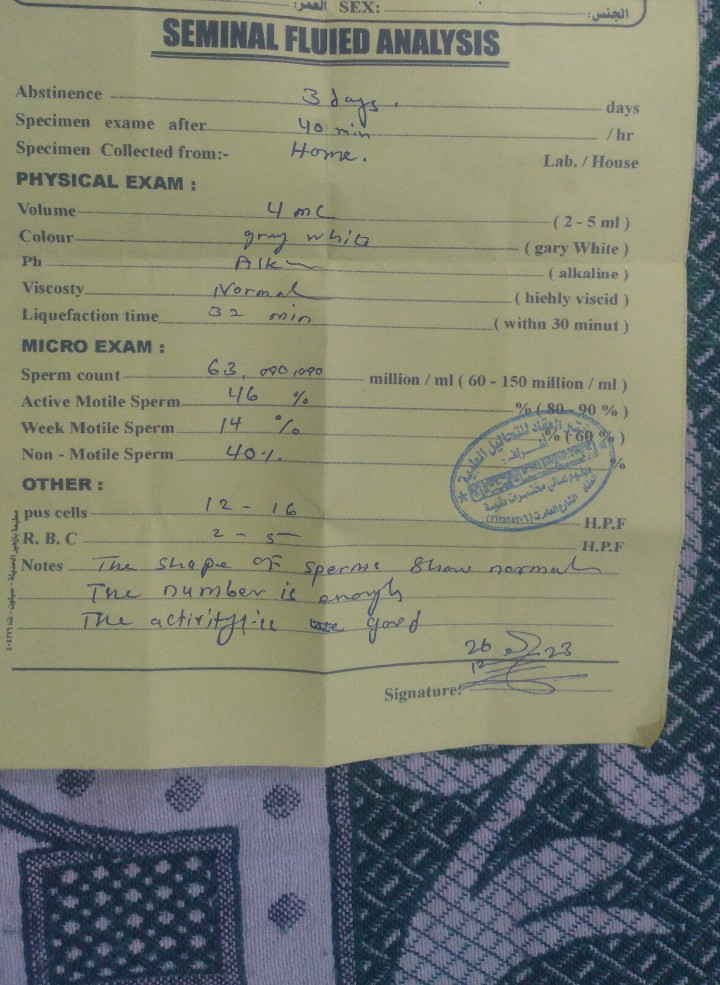 الجنس: SEX: العمر:
SEMINAL FLUIED ANALYSIS
Abstinence 3 days. days
Specimen exame after 40 min / hr
Specimen Collected from:- Home. Lab. / House
PHYSICAL EXAM :
Volume 4 mL ( 2 - 5 ml )
Colour gray white ( gary White )
Ph Alk ( alkaline )
Viscosty Normal ( hiehly viscid )
Liquefaction time 32 min ( withn 30 minut )
MICRO EXAM :
Sperm count 63,000,000 million / ml ( 60 - 150 million / ml )
Active Motile Sperm 46 % % ( 80 - 90 % )
Week Motile Sperm 14 % % ( 60 % )
Non - Motile Sperm 40 % %
OTHER :
pus cells 12 - 16 H.P.F
R. B. C 2 - 5 H.P.F
Notes The shape of sperms show normal
The number is enough
The activity is good
26 12 23
Signature: